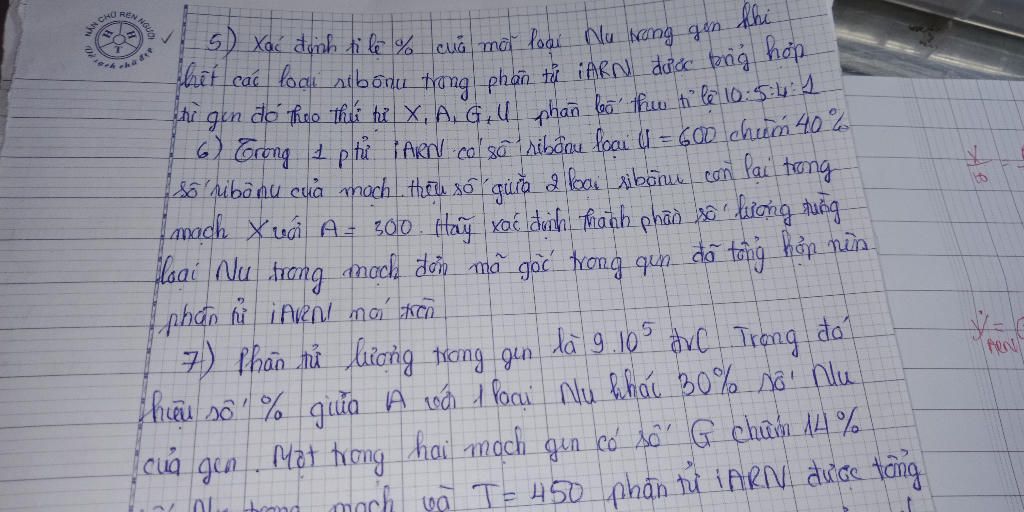 NHÂN CHỮ RÈN NGƯỜI
5) Xác định tỉ lệ % của mỗi loại Nu trong gen khi
biết các loại ribônu trong phân tử iARN được tổng hợp
từ gen đó theo thứ tự X, A, G, U phân bố theo tỉ lệ 10:5:4:1
6) Trong 1 ptử iARN có số ribônu loại U = 600 chiếm 40%
số ribônu của mạch thiệu số giữa 2 loại ribônu còn lại trong
mạch X với A = 300. Hãy xác định thành phần số lượng từng
loại Nu trong mạch đơn mã gốc trong gen đã tổng hợp nên
phân tử iARN nói trên
7) Phân tử lượng trong gen là 9.10⁵ đvC Trong đó
hiệu số % giữa A với 1 loại Nu khác 30% số Nu
của gen. Một trong hai mạch gen có số G chiếm 14%
Nu trong mạch và T = 450 phân tử iARN được tổng